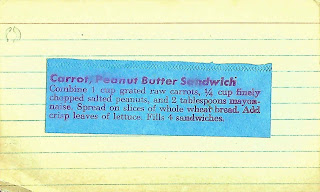 Carrot, Peanut Butter Sandwich
Combine 1 cup grated raw carrots, ¼ cup finely
chopped salted peanuts, and 2 tablespoons mayon-
naise. Spread on slices of whole wheat bread. Add
crisp leaves of lettuce. Fills 4 sandwiches.